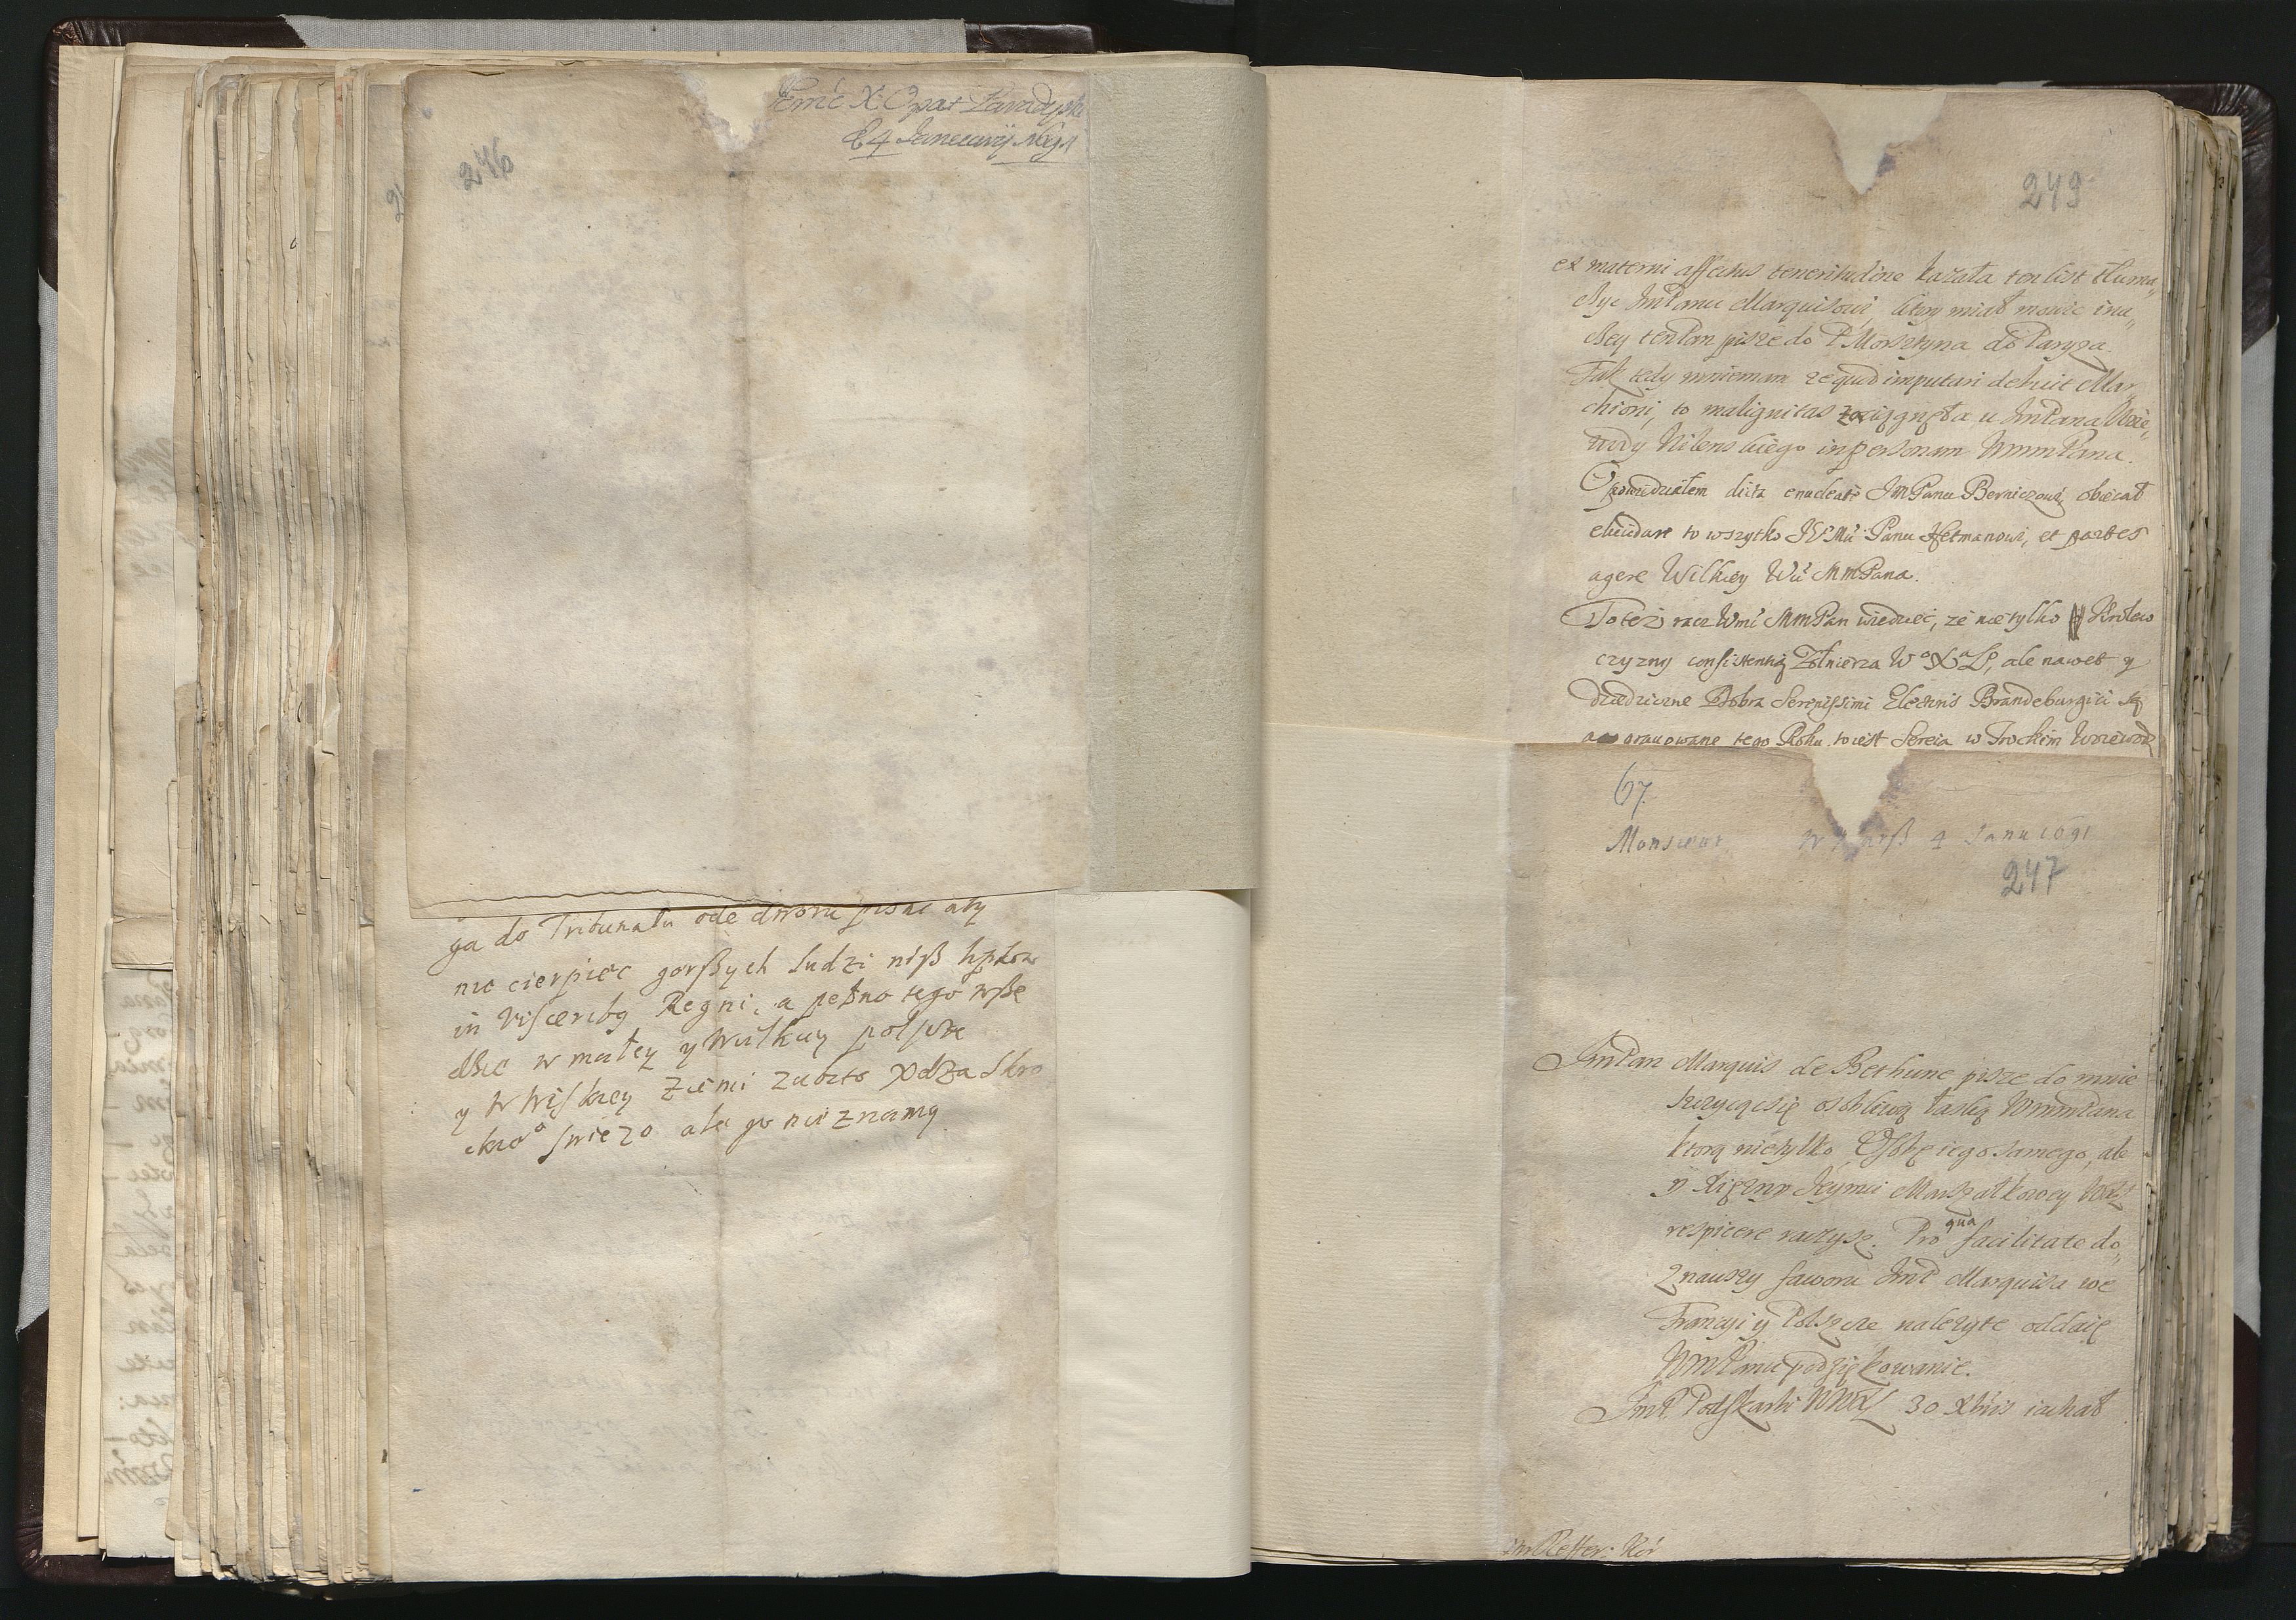 Jemć X. Opat
4 Januarij 1691
246
ga do Tribunału ode dworu pisac aby
nie cierpiec gorßych ludzi niß
in Visceribg Regni, a pełno tego wßę
dźie w małey y Wielkiey polszcze
y w Ziemi zabito Xdza Skro
świezo ale go nie znamy
249
ex materni affectus teneritudine kazała ten list tłuma„
czyc ImPanu Marquisowi, ktory miał mowic ina„
czey ten Pan pisze do P Morsztyna do Paryza.
Tak tedy mniemam ze quod imputari debuit Mar„
chioni, to malignitas zaciągnęła u ImPana Woie„
wody Wilenskiego in personam WmmPana.
Opowiedziałem enucleate ImPanu Berniczowi, obiecał
elucidare to wszytko JWMci Panu Hetmanowi, et partes
agere Wilkiey Wć MmPana.
To też racz Wmć MmPan wiedziec, ze nie tylko Krolew
czyzny consistentią Zołnierza Wo Xa L, ale nawet y
Dziedziczne Dobra Serenissimi Electoris Brandeburgici są
aggrauowane tego Roku, to iest Sereia w Trockim Woiewod
67.
Monsieur 4 Janu 1691
247
ImPan Marquis de Bethune pisze do mnie
szczycąc się osobliwą łaską WmmPana
ktorą nie tylko Osobę iego samego, ale
y Xięzny Jeymci Marszałkowey WXL
respicere raczysz. Pro qua facilitate do„
znauszy faworu ImP Marquisa we
Francyi y Polszcze nalezyte oddaię
WmPanu podzięwowanie.
ImP. Podskarbi WXL 30 Xbris iachał
Reffer: Kor